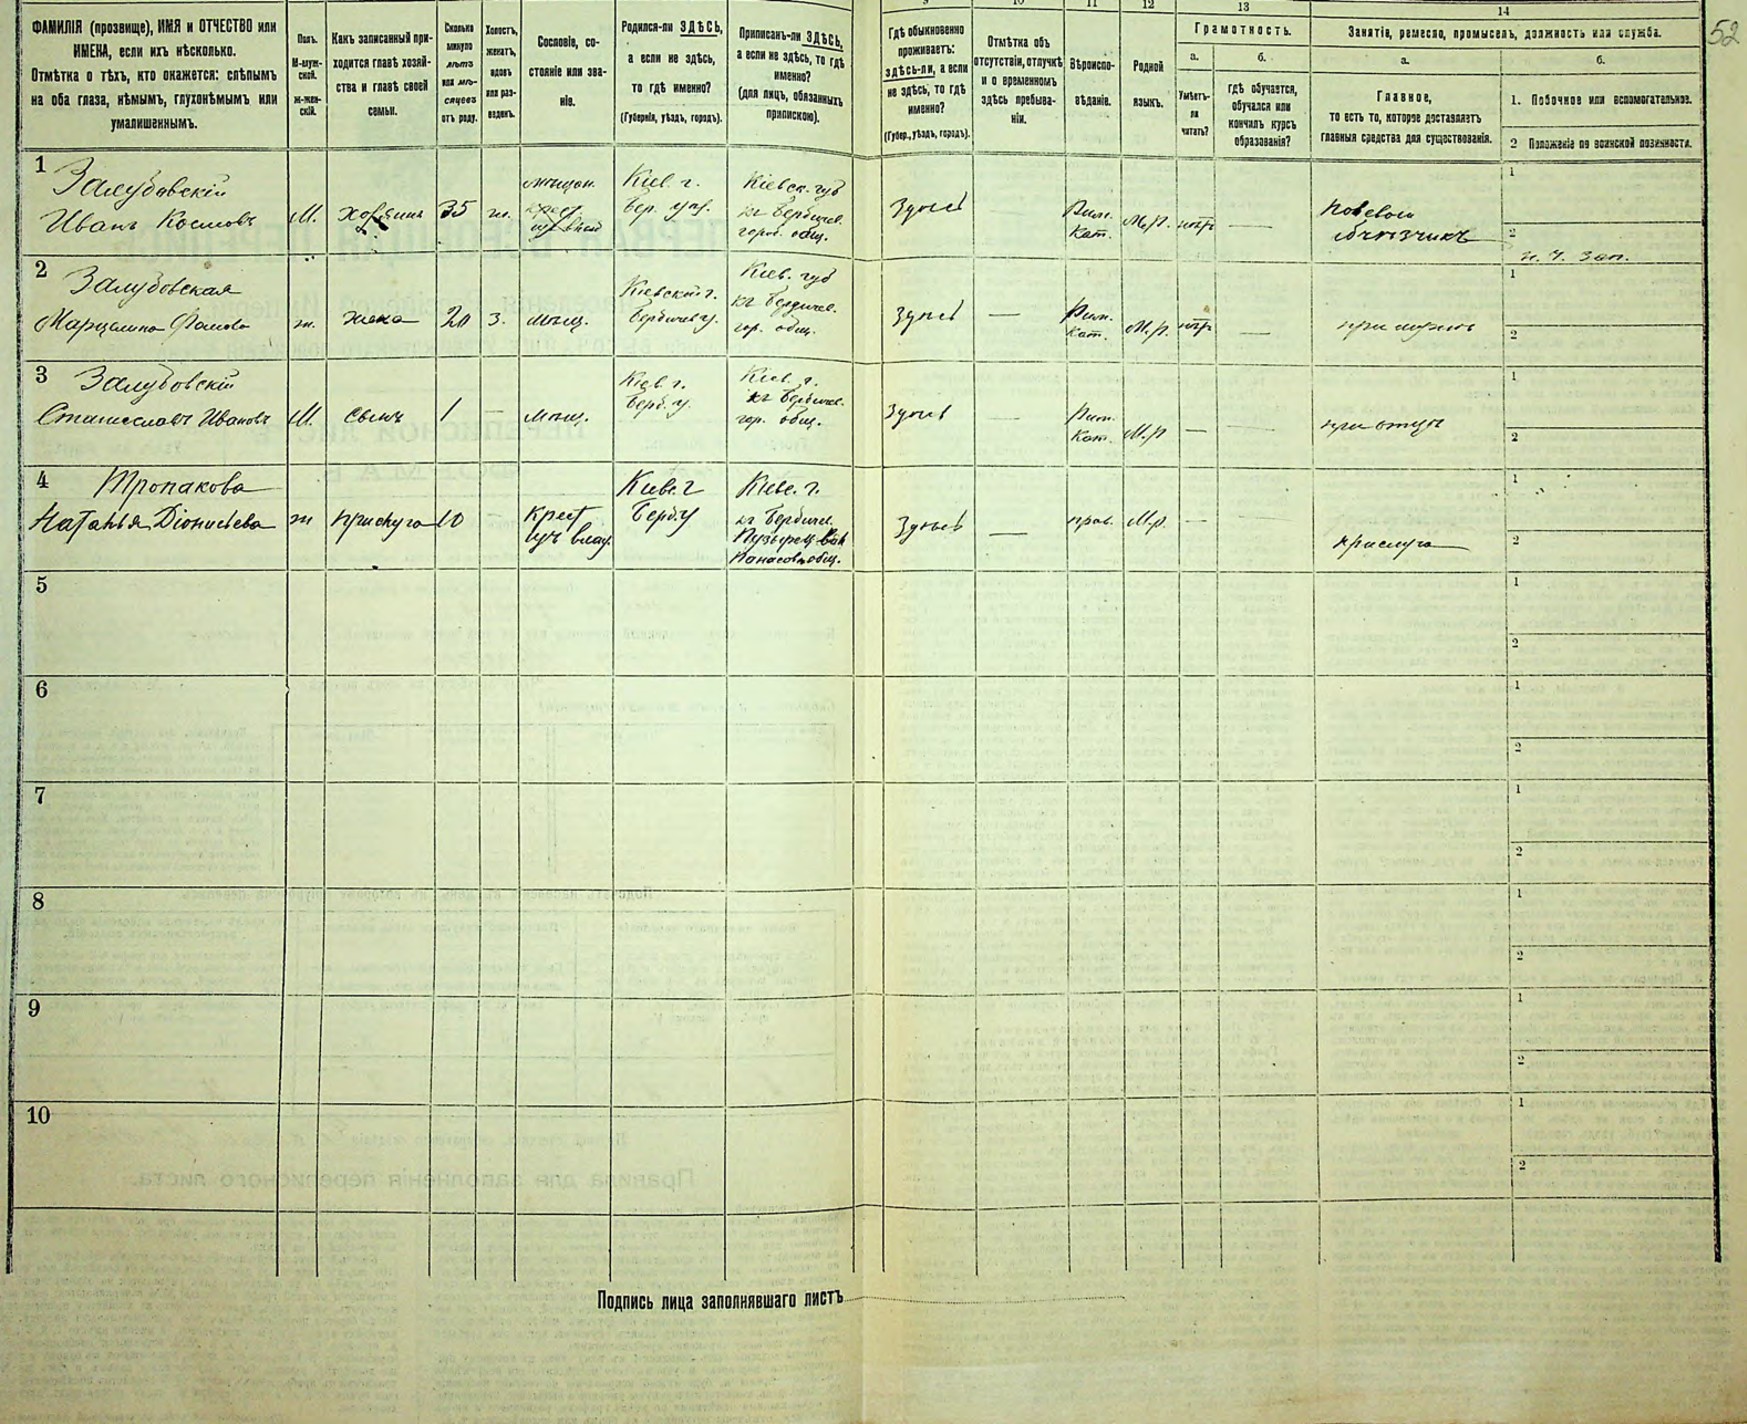 52
9 10 11 12 13 14
ФАМИЛІЯ (прозвище), ИМЯ и ОТЧЕСТВО или
ИМЕНА, если ихъ нѣсколько.
Отмѣтка о тѣхъ, кто окажется: слѣпымъ
на оба глаза, нѣмымъ, глухонѣмымъ или
умалишеннымъ.
Полъ.
М-муж-
ской.
ж-жен-
скій.
Какъ записанный при-
ходится главѣ хозяй-
ства и главѣ своей
семьи.
Сколько
минуло
лѣтъ
или мѣ-
сяцевъ
отъ роду.
Холостъ,
женатъ,
вдовъ
или раз-
веденъ.
Сословіе, со-
стояніе или зва-
ніе.
Родился-ли ЗДѢСЬ,
а если не здѣсь,
то гдѣ именно?
(Губернія, уѣздъ, городъ).
Приписанъ-ли ЗДѢСЬ,
а если не здѣсь, то гдѣ
именно?
(для лицъ, обязанныхъ
припискою).
Гдѣ обыкновенно
проживаетъ:
здѣсь-ли, а если
не здѣсь, то гдѣ
именно?
(Губер., уѣздъ, городъ).
Отмѣтка объ
отсутствіи, отлучкѣ
и о временномъ
здѣсь пребыва-
ніи.
Вѣроиспо-
вѣданіе.
Родной
языкъ.
Грамотность.
а.
Умѣетъ-
ли
читать?
б.
гдѣ обучается,
обучался или
кончилъ курсъ
образованія?
Занятіе, ремесло, промыселъ, должность или служба.
а.
Главное,
то есть то, которое доставляетъ
главныя средства для существованія.
б.
1. Побочное или вспомогательное.
2 Положеніе по воинской повинности.
1
Залубовскій
Иванъ Космовъ
М.
хозяинъ
35
ж.
мѣщан.
крест
Кіев. г.
Бер. уѣз.
Кіевск. губ
къ Бердичев.
город. общ.
Здѣсь
Рим.
Кат.
М.р.
—
1
2
2
Залубовская
Марцелина
ж.
жена
20
з.
мѣщ.
Кіевской г.
Бердичев у.
Кіев. губ
къ Бердичев.
гор. общ.
Здѣсь
—
Рим.
Кат.
М.р.
—
при мужѣ
1
2
3
Залубовскій
Станиславъ Ивановъ
М.
сынъ
1
—
мѣщ.
Кіев. г.
Берд. у.
Кіев. г.
къ Бердичев.
гор. общ.
Здѣсь
—
Рим.
Кат.
М.р
—
при отцѣ
1
2
4
Тропакова
Наталья Діонисіева
ж
прислуга
10
Крест
Киев. г
Берд. у
Кіев. г.
къ Бердичев.
общ.
Здѣсь
—
прав.
М.р.
—
прислуга
1
2
5
1
2
6
1
2
7
1
2
8
1
2
9
1
2
10
1
2
Подпись лица заполнявшаго листъ